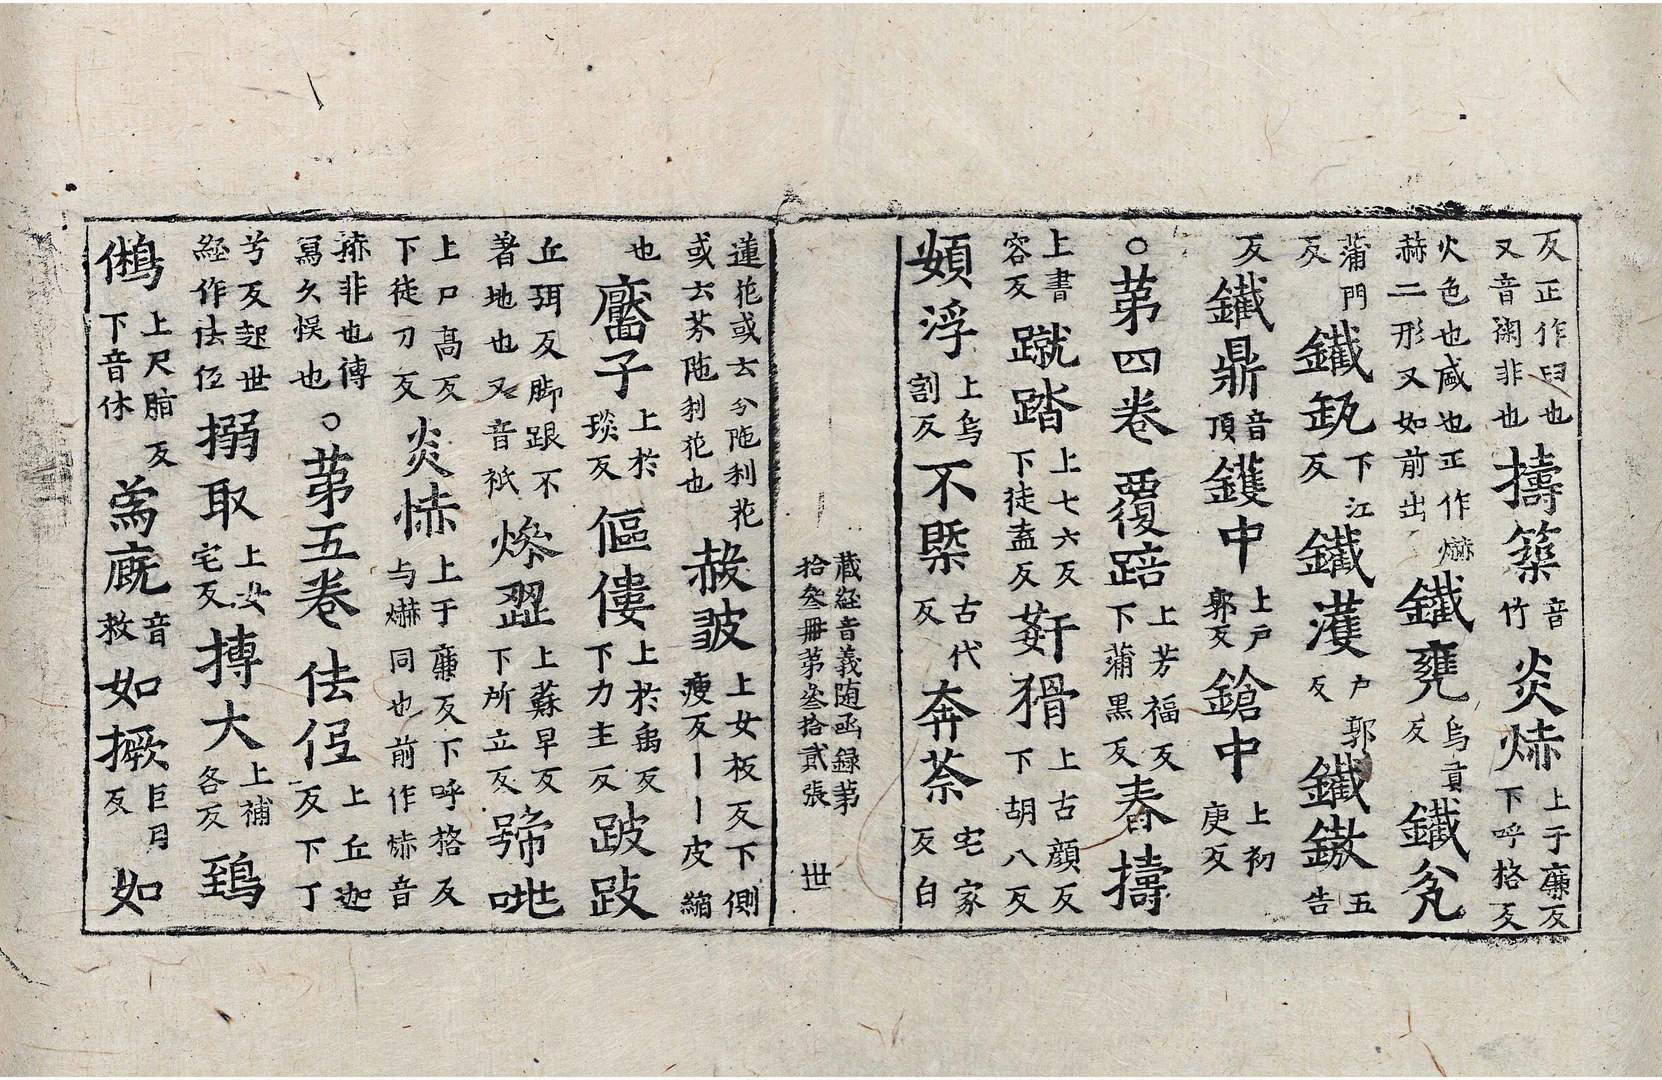 反正作臼也又音匊非也擣築音竹炎烞上于廉反下呼格反
火色也咸也正作爀赫二形又如前出鐵甕烏貢反鐵瓮
蒲門反鐵瓨下江反鐵濩户郭反鐵鏉五告
反鐵鼎音頂鑊中上户郭反鎗中上初庚反
○第四卷覆踣上芳福反下蒲黑反舂擣
上書容反蹴踏上七六反下徒盍反姧猾上古顔反下胡八反
頞浮上烏割反不槩古代反奔荼宅家反白
藏経音義随函録第拾叁冊第叁拾貳張 世
蓮花或云分陁利花或云芬陁利花也赧皱上女板反下側瘦反丨丨皮縮
也黶子上扵琰反傴僂上扵禹反下力主反跛跂
丘弭反脚跟不著地也又音祇燥澀上蘇早反下所立反嗁吡
上尸高反下徒刀反炎烞上于廉反下呼格反与爀同也前作烞音
赫非也傳寫久悮也○第五卷佉俓上丘迦反下丁
兮反起世経作佉伍搦取上女宅反搏大上補各反鵄
鵂上尺脂反下音休為廐音救如橛巨月反如